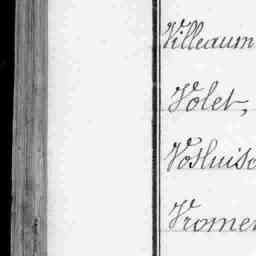 Villeaum
Volet,
Vosluisc
Vromen